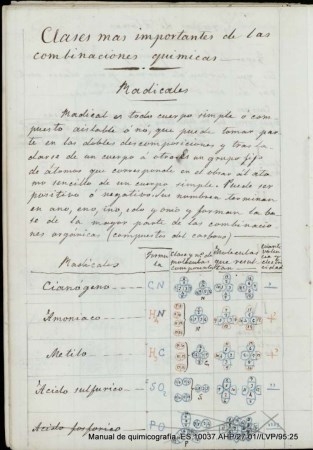 Clases mas importantes de las
combinaciones quimicas
Radicales
Radical es todo cuerpo simple ó com-
puesto aislable ó no, que puede tomar par-
te en las dobles descomposiciones y trasla-
darse de un cuerpo á otro: es un grupo fijo
de átomos que corresponde en el obrar al áto-
mo sencillo de un cuerpo simple. Puede ser
positivo ó negativo. Se nombran terminan
en ano, eno, ino, ilo y onio y forman la ba-
se de la mayor parte de las combinacio-
nes orgánica (compuestos del carbono)
Radicales Formu-
la Clase y nº de
moleculas
componentes Moleculas
que resul-
tan
Cianógeno CN
Amoniaco H N
Metilo H C
Acido sulfurico SO2
Acido fosforico PO
Manual de quimicografía. ES.10037.AHP/27.01//LVP/95.25